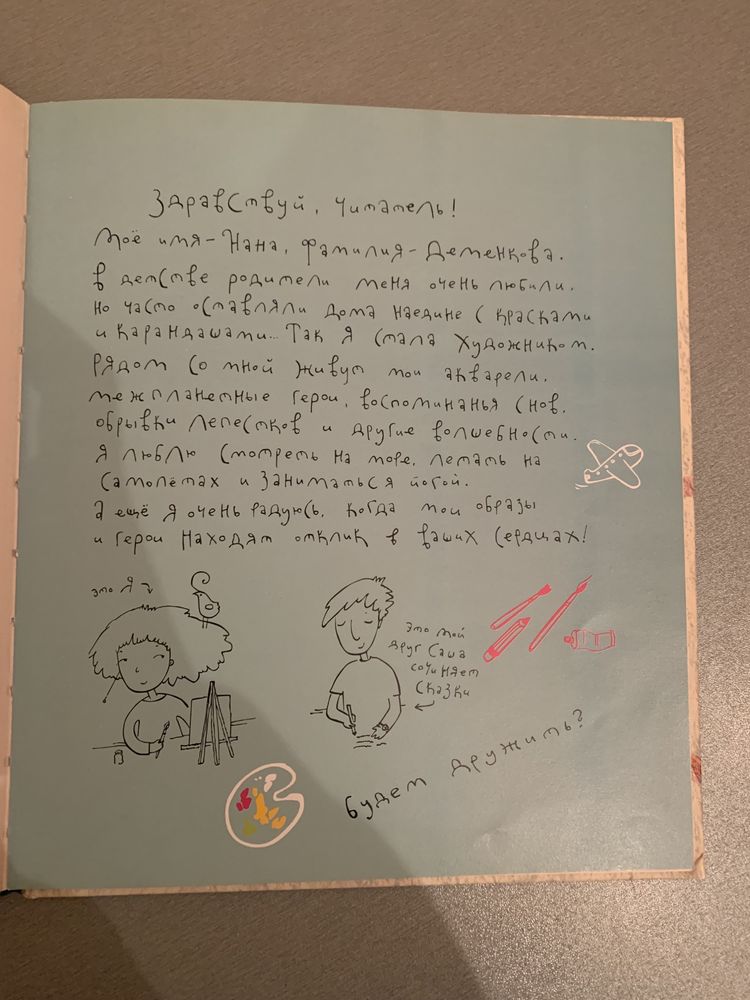 Здравствуй, читатель!
Моё имя – Нана, фамилия – Деменкова.
В детстве родители меня очень любили,
но часто оставляли дома наедине с красками
и карандашами... Так я стала художником.
Рядом со мной живут мои акварели,
межпланетные герои, воспоминанья снов,
обрывки лепестков и другие волшебности.
Я люблю смотреть на море, летать на
самолётах и заниматься йогой.
А ещё я очень радуюсь, когда мои образы
и герои находят отклик в ваших сердцах!
это я
это мой
друг Саша
сочиняет
сказки
Будем дружить?